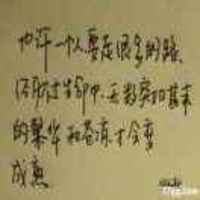 也许一个人要走很多的路、
经历过生命中无数突如其来
的繁华和苍凉才会变
成熟